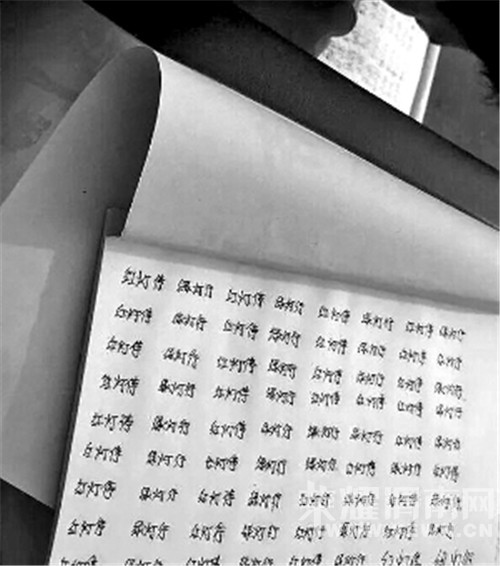 红灯停 绿灯行 红灯停 绿灯行 红灯停 绿灯行 红灯停 绿灯行
红灯停 绿灯行 红灯停 绿灯行 红灯停 绿灯行 红灯停 绿灯行
红灯停 绿灯行 红灯停 绿灯行 红灯停 绿灯行 红灯停 绿灯行
红灯停 绿灯行 红灯停 绿灯行 红灯停 绿灯行 红灯停 绿灯行
红灯停 绿灯行 红灯停 绿灯行 红灯停 绿灯行 红灯停 绿灯行
红灯停 绿灯行 红灯停 绿灯行 红灯停 绿灯行 红灯停 绿灯行
红灯停 绿灯行 红灯停 绿灯行 红灯停 绿灯行 红灯停
红灯停 绿灯行 红灯停 绿灯行 红灯停 绿灯行 红灯停 绿灯行
红灯停 绿灯行 红灯停 绿灯行 红灯停 绿灯行